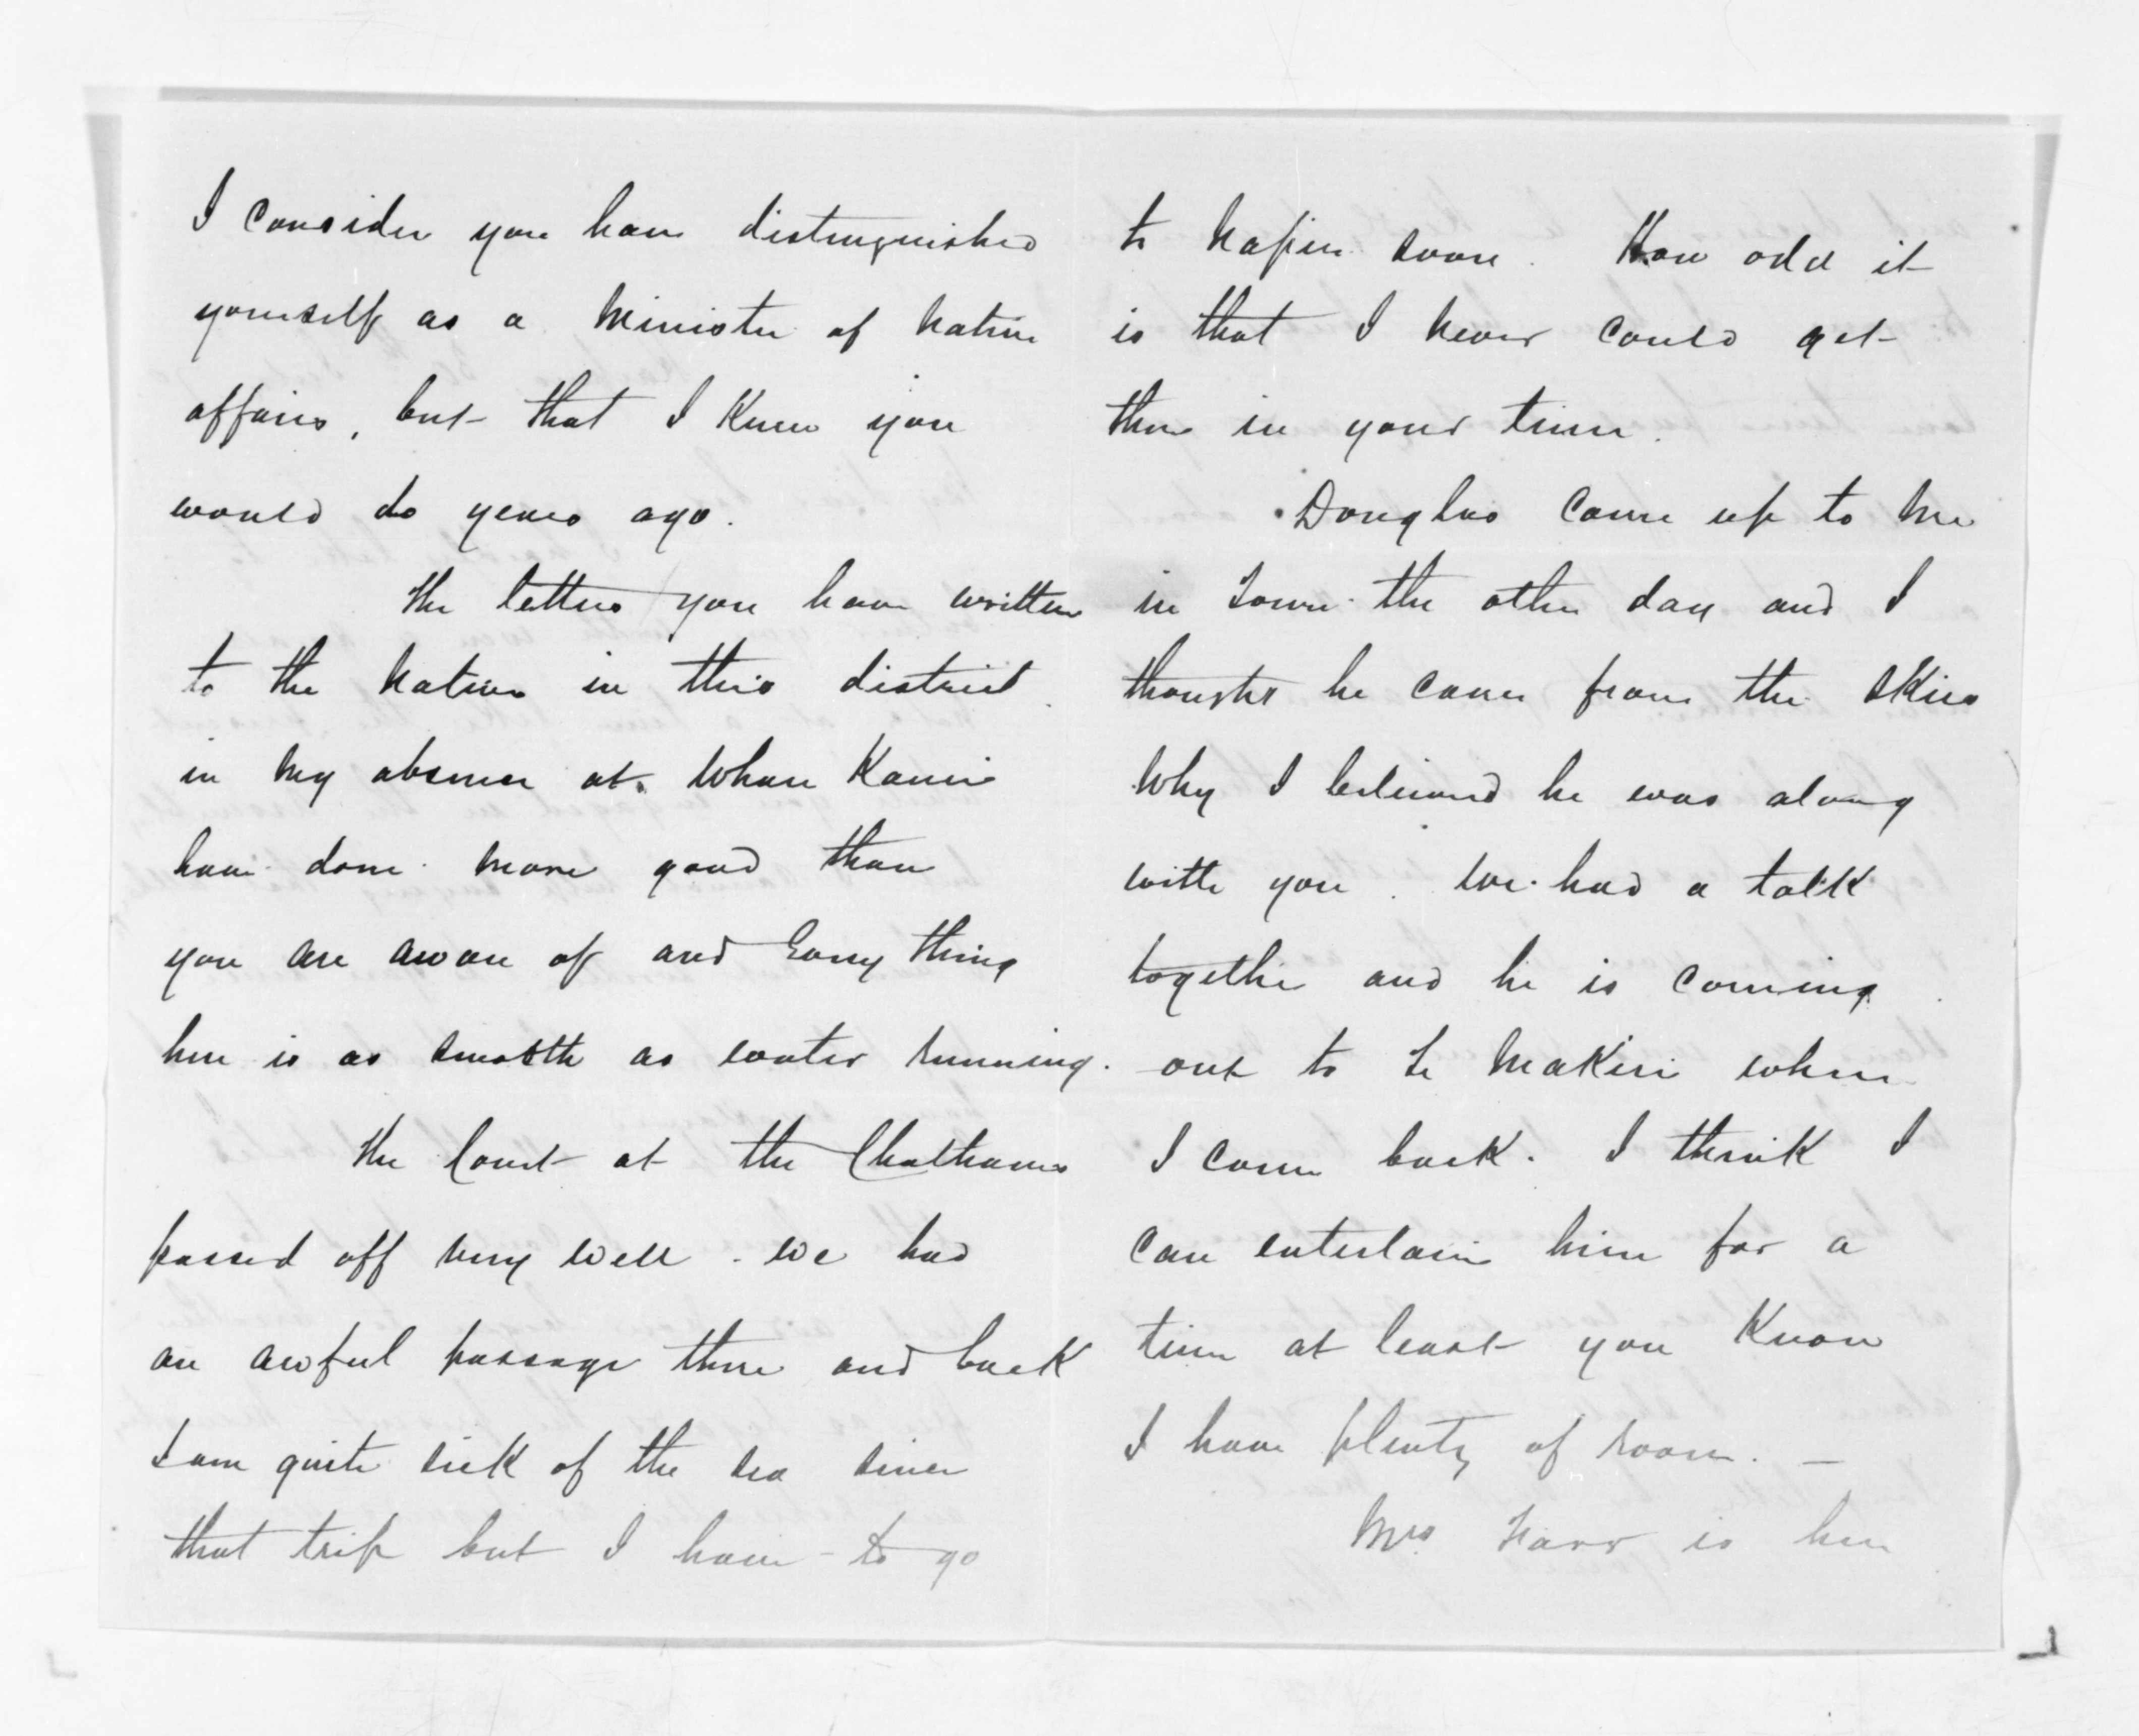 I consider you have distinguished
yourself as a Minister of Native
affairs, but that I knew you
would do years ago.
The letters you have written
to the Natives in this district
in my absence at Wharekauri
have done more good than
you are aware of and Every thing
here is as smooth as water running.
The Court at the Chathams
passed off very well. We had
an awful passage there and back
I am quite sick of the sea since
that trip but I have to go
to Napier soon. How odd it
is that I never could get
there in your time.
Douglas came up to me
in Town the other day and I
thought he came from the skies
Why I believed he was along
with you. We had a talk
together and he is coming
out to Te Makiri when
I come back. I think I
can entertain him for a
time at least you know
I have plenty of room. —
Mrs is here